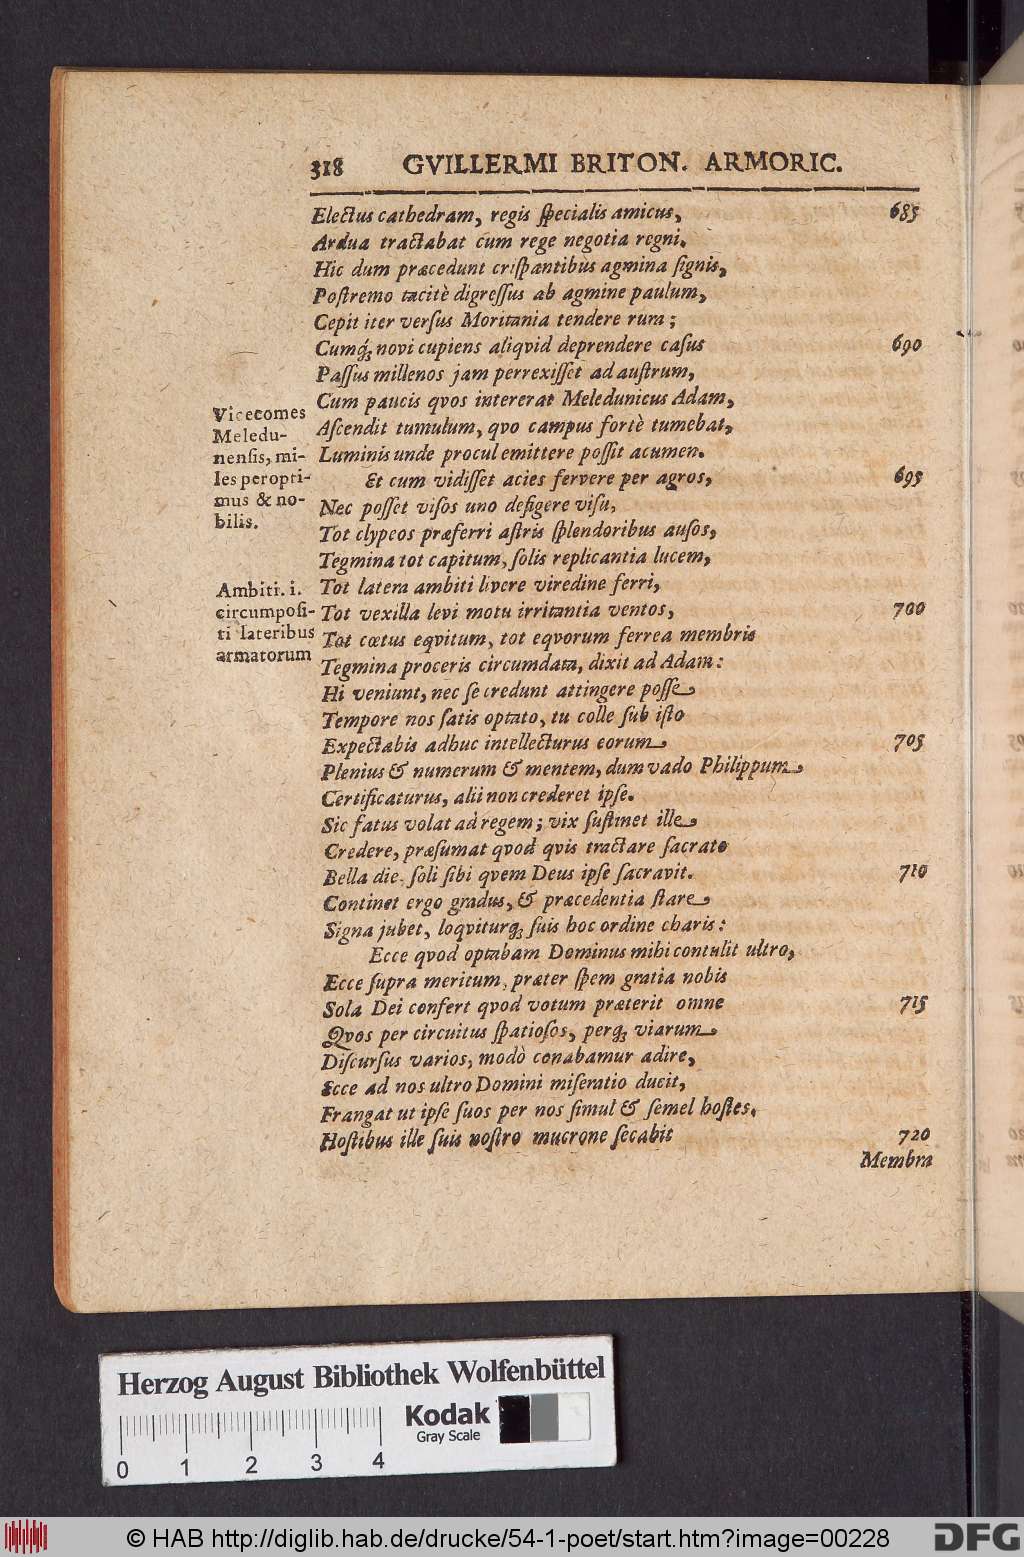 318 GVILLERMI BRITON. ARMORIC.
Electus cathedram, regis ſpecialis amicus, 685
Ardua tractabat cum rege negotia regni.
Hic dum præcedunt criſpantibus agmina ſignis,
Poſtremo tacitè digreſſus ab agmine paulum,
Cepit iter verſus Moritania tendere rura;
Cumq́ꝫ novi cupiens aliqvid deprendere caſus 690
Paſſus millenos jam perrexiſſet ad auſtrum,
Cum paucis qvos intererat Meledunicus Adam,
Aſcendit tumulum, qvo campus fortè tumebat,
Luminis unde procul emittere poſſit acumen.
Et cum vidiſſet acies fervere per agros, 695
Nec poſſet viſos uno defigere viſu,
Tot clypeos præferri aſtris ſplendoribus auſos,
Tegmina tot capitum, ſolis replicantia lucem,
Tot latera ambiti livere viredine ferri,
Tot vexilla levi motu irritantia ventos, 700
Tot cœtus eqvitum, tot eqvorum ferrea membris
Tegmina proceris circumdata, dixit ad Adam:
Hi veniunt, nec ſe credunt attingere poſſe
Tempore nos ſatis optato, tu colle ſub iſto
Expectabis adhuc intellecturus eorum 705
Plenius & numerum & mentem, dum vado Philippum
Certificaturus, alii non crederet ipſe.
Sic fatus volat ad regem; vix ſuſtinet ille
Credere, præſumat qvod qvis tractare ſacrato
Bella die ſoli ſibi qvem Deus ipſe ſacravit. 710
Continet ergo gradus, & præcedentia ſtare
Signa jubet, loqviturqꝫ ſuis hoc ordine charis:
Ecce qvod optabam Dominus mihi contulit ultro,
Ecce ſupra meritum, præter ſpem gratia nobis
Sola Dei confert qvod votum præterit omne 715
Qvos per circuitus ſpatioſos, perqꝫ viarum
Diſcurſus varios, modò conabamur adire,
Ecce ad nos ultro Domini miſeratio ducit,
Frangat ut ipſe ſuos per nos ſimul & ſemel hoſtes.
Hoſtibus ille ſuis noſtro mucrone ſecabit 720
Membra
Vicecomes
Meledu-
nenſis, mi-
les peropti-
mus & no-
bilis.
Ambiti. i.
circumpoſi-
ti lateribus
armatorum
Herzog August Bibliothek Wolfenbüttel
Kodak
Gray Scale
0 1 2 3 4
© HAB http://diglib.hab.de/drucke/54-1-poet/start.htm?image=00228
DFG